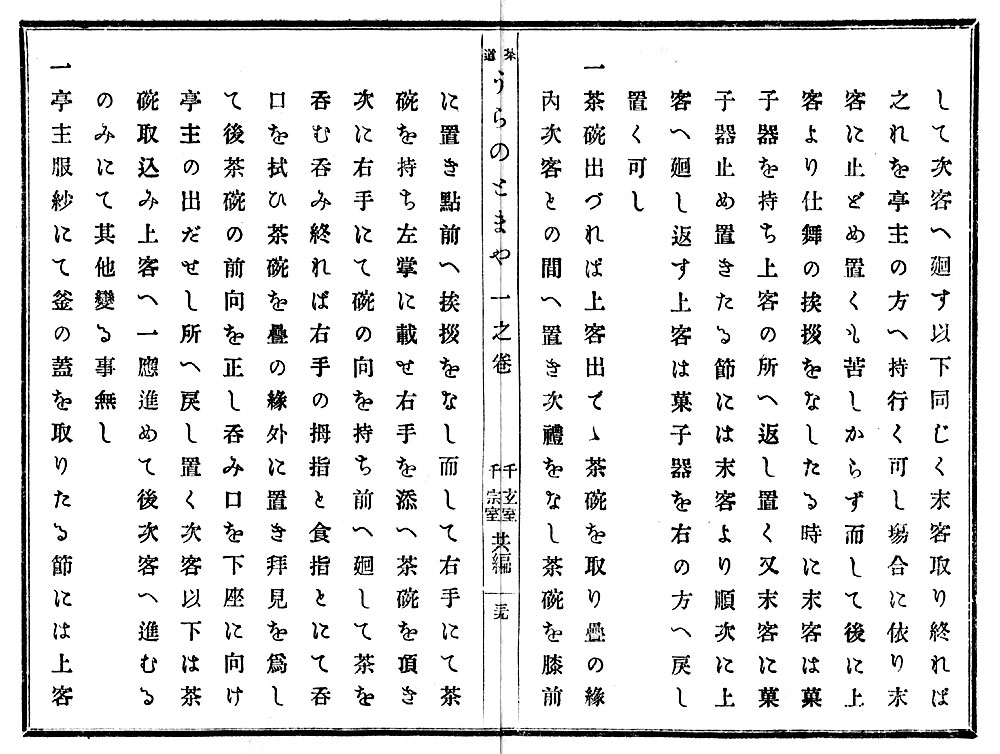 して次客へ廻す以下同じく末客取り終れば
之れを亭主の方へ持行く可し塲合に依り末
客に止どめ置くも苦しからず而して後に上
客より仕舞の挨拶をなしたる時に末客は菓
子器を持ち上客の所へ返し置く又末客に菓
子器止め置きたる節には末客より順次に上
客へ廻し返す上客は菓子器を右の方へ戻し
置く可し
一茶碗出づれば上客出てゝ茶碗を取り疊の緣
內次客との間へ置き次禮をなし茶碗を膝前
茶道うらのとまや 一之卷 千玄室 千宗室 共編 三十九
に置き點前へ挨拶をなし而して右手にて茶
碗を持ち左掌に載せ右手を添へ茶碗を頂き
次に右手にて碗の向を持ち前へ廻して茶を
呑む呑み終れば右手の拇指と食指とにて呑
口を拭ひ茶碗を疊の緣外に置き拜見を爲し
て後茶碗の前向を正し呑み口を下座に向け
亭主の出だせし所へ戾し置く次客以下は茶
碗取込み上客へ一應進めて後次客へ進むる
のみにて其他變る事無し
一亭主服紗にて釜の蓋を取りたる節には上客